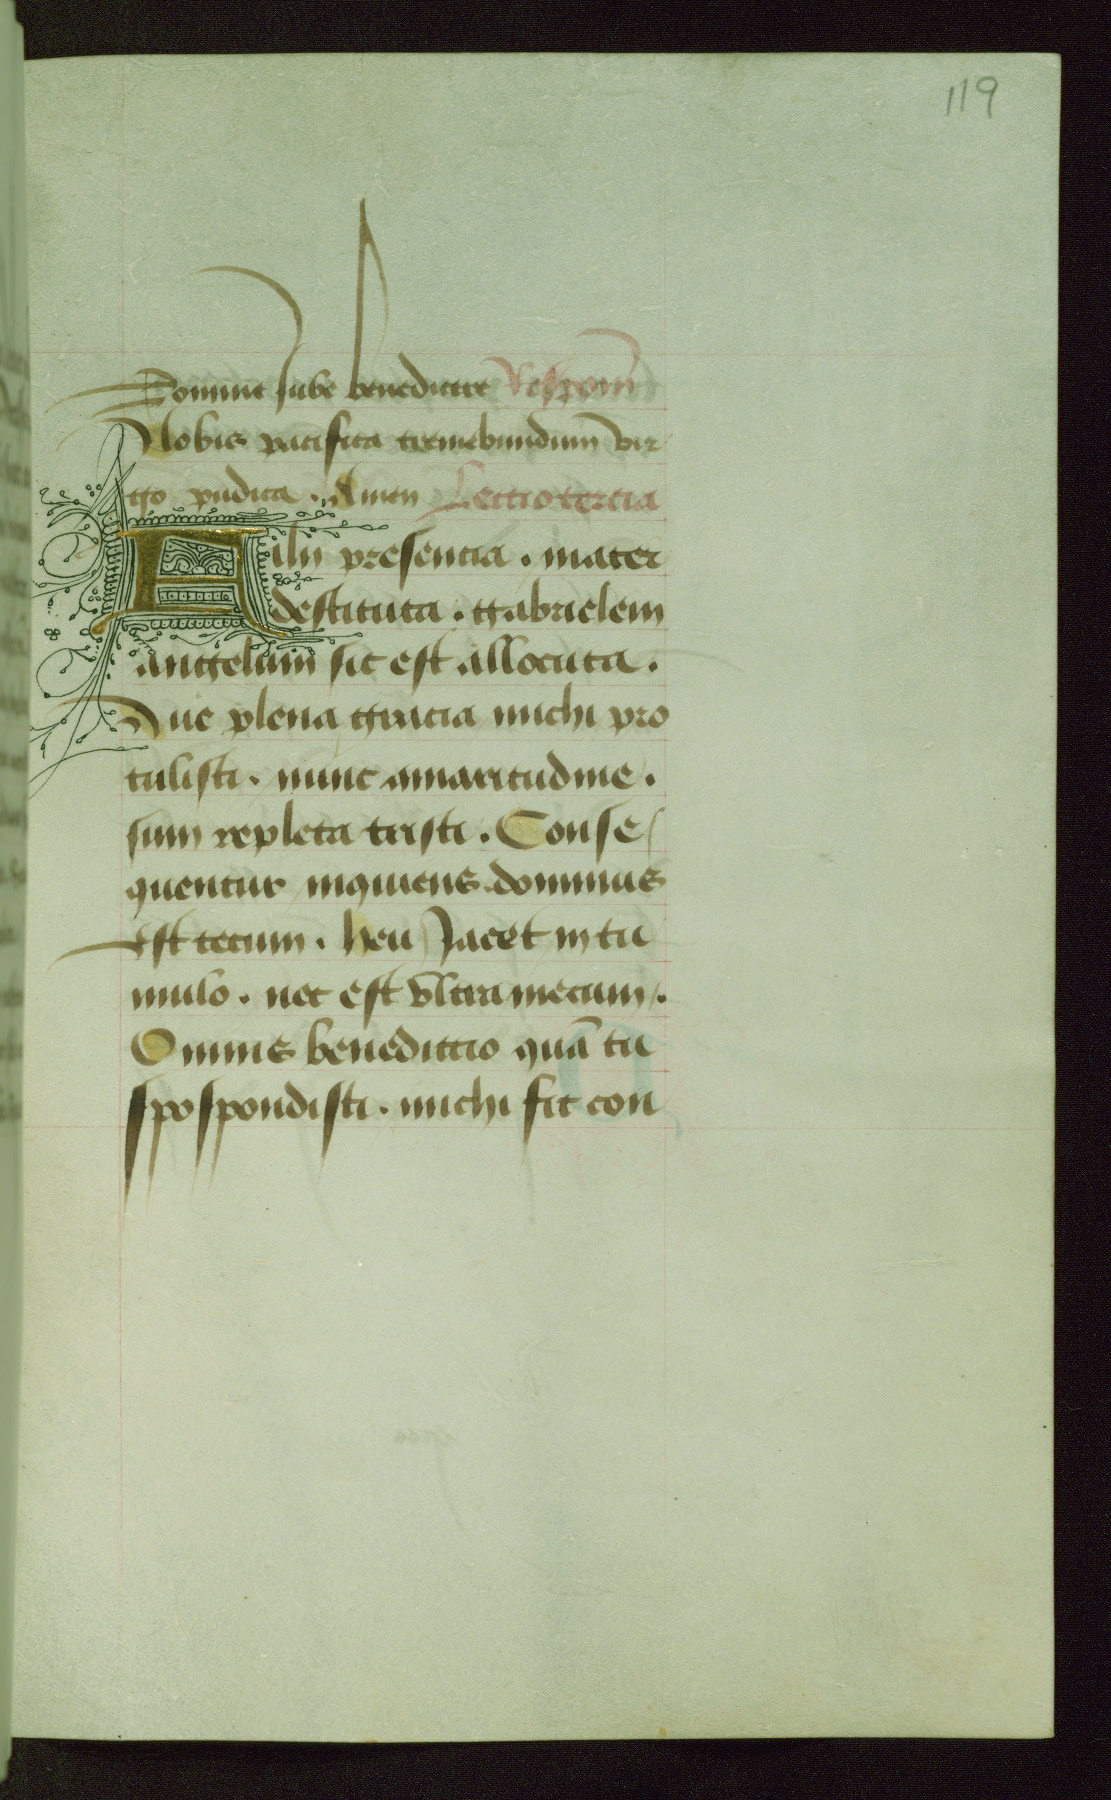 119
Domine jube benedicere Respom̄
Nobis pacifica tremebundum vir
go pudica . Amen Lectio tercia
Alij presencia . mater
destituta . gabrielem
angelum sic est allocuta .
Aue plena gracia michi pro
tulisti . nunc amaritudine .
sum repleta tristi . Conse
quentur inquiens dominus
est tecum . heu Jacet in tu
mulo . nec est vltra mecum .
Omnis benedictio quā tu
spospondisti . michi fit con